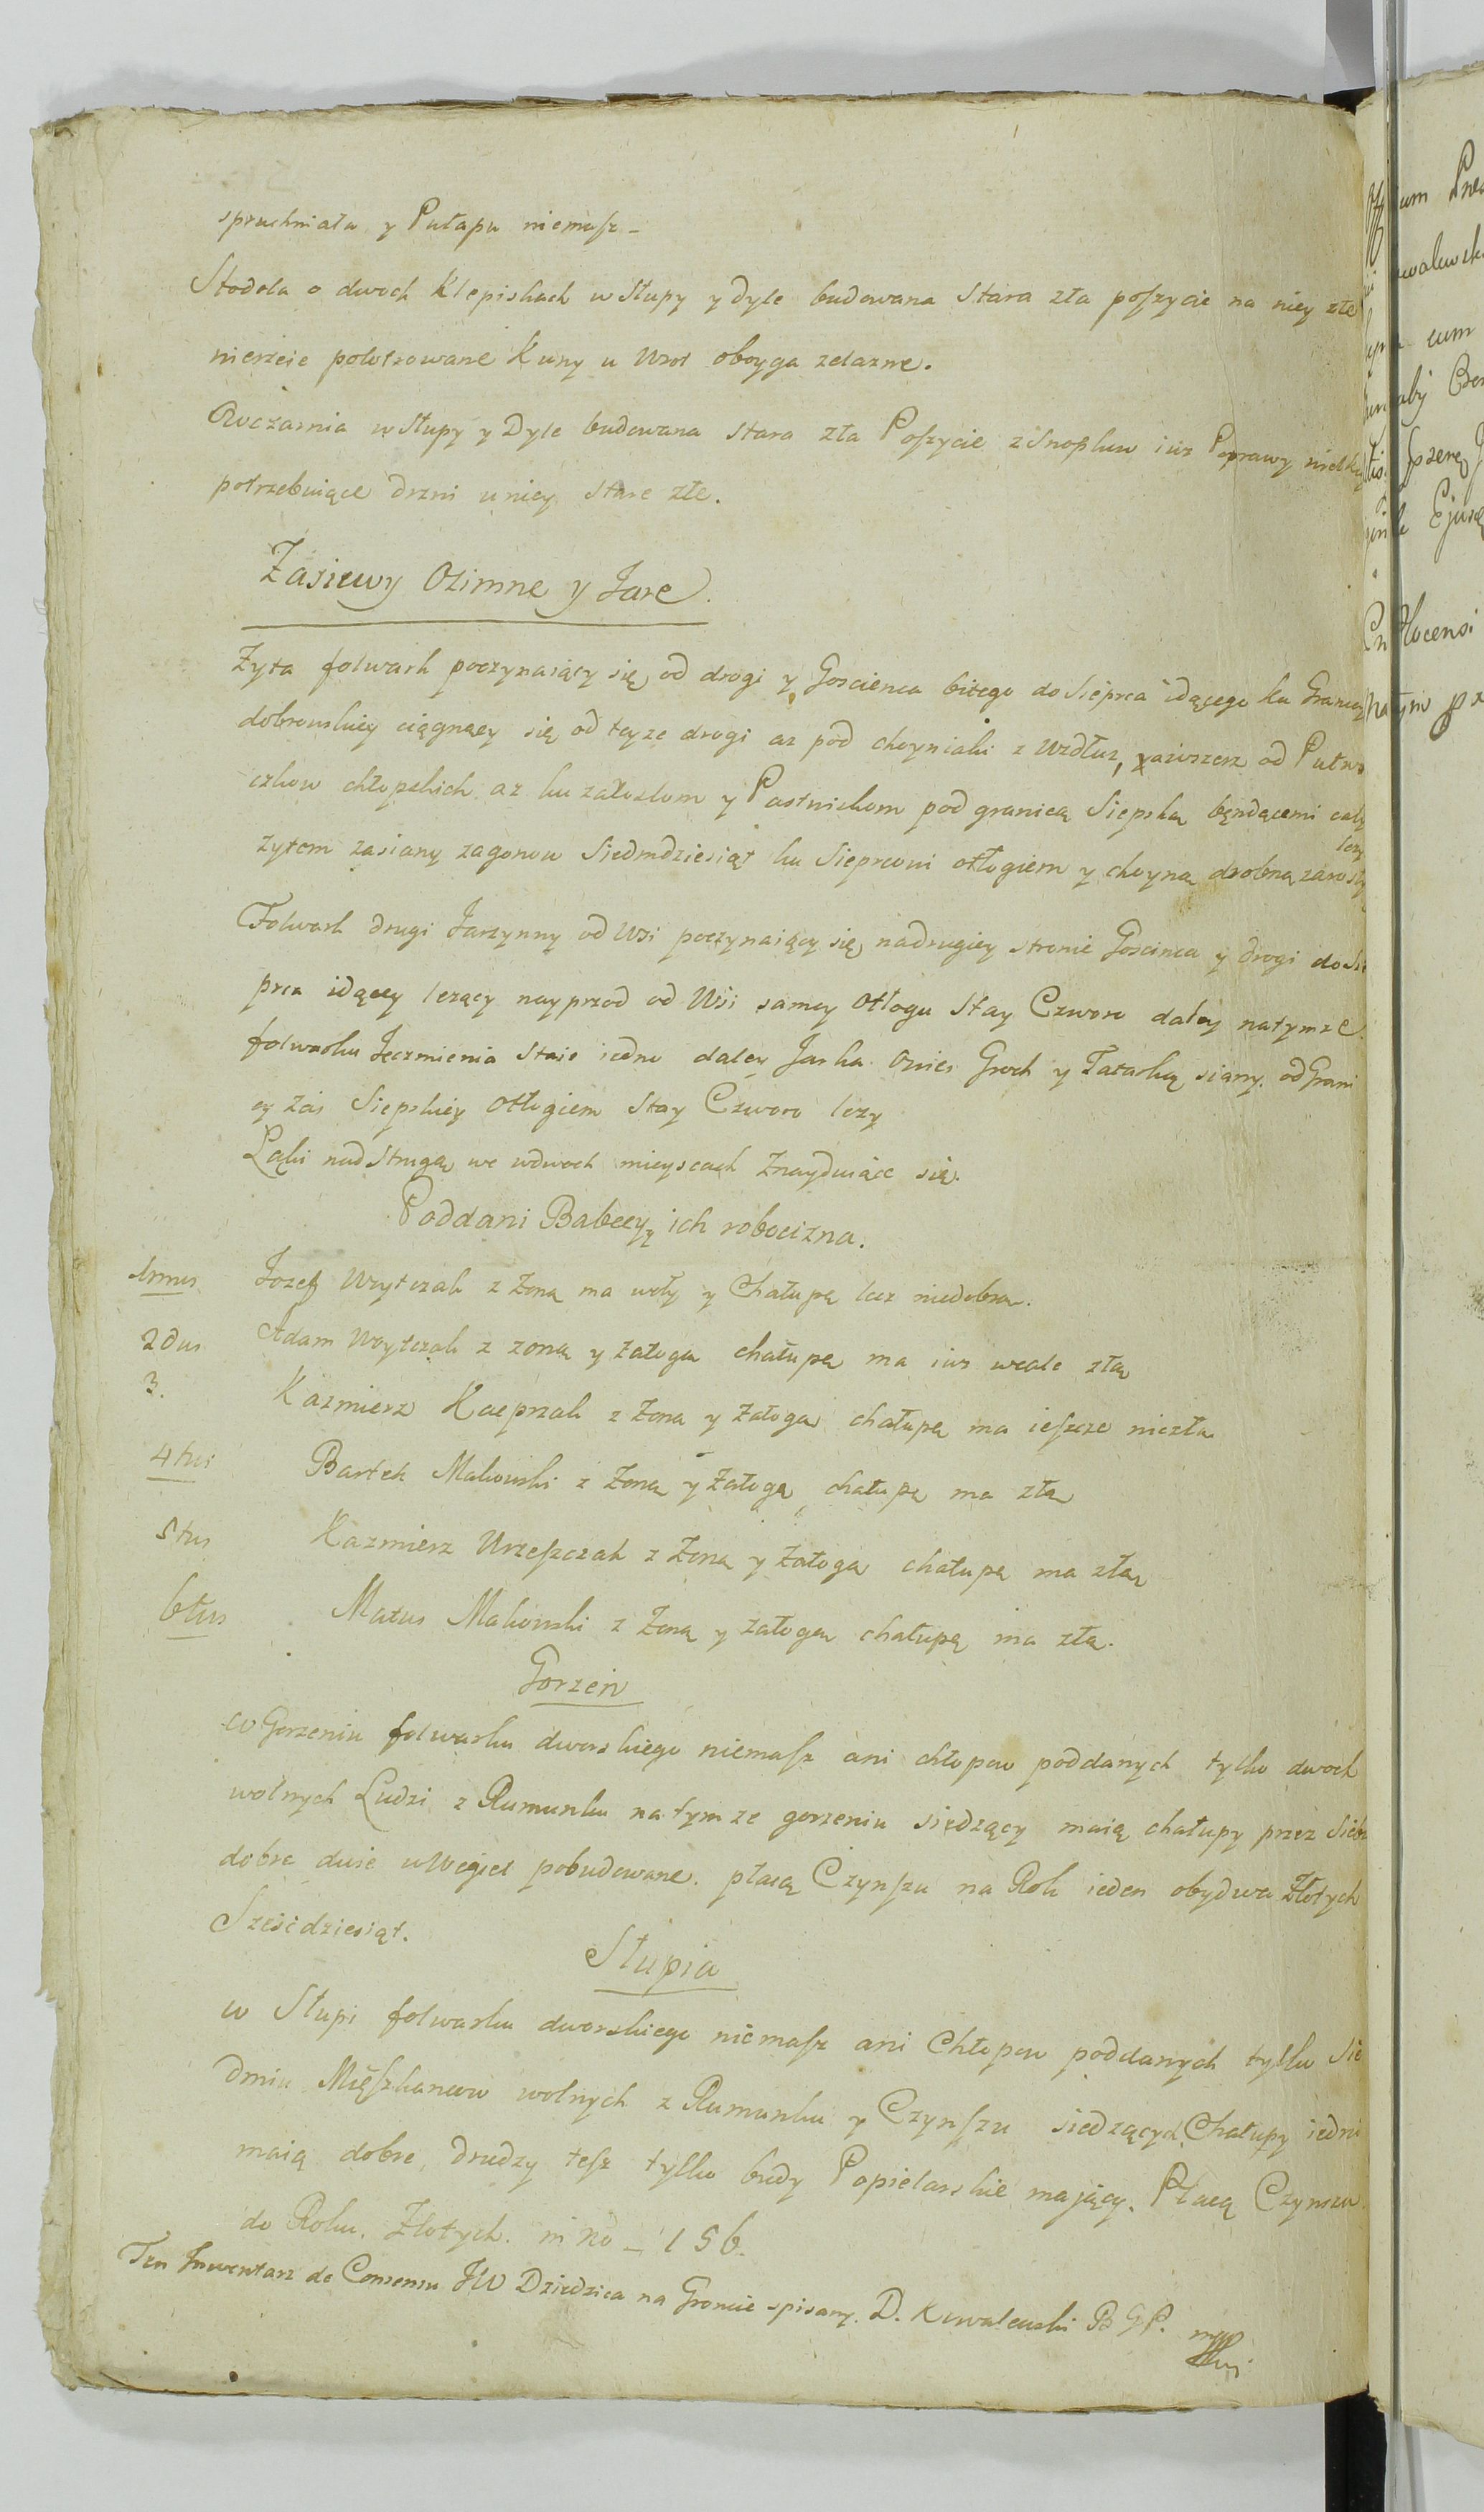 spruchniała y Pułapu niemasz _
Stodola o dwoch Klepiskach w Słupy y dyle budowana Stara zła poszycie na niey złe
nierzcie Kuny u Wrot oboyga zelazne.
Owczarnia w Słupy y Dyle budowana stara zła Poszycie z Snopkuw iuz Poprawy
potrzebuiące drzni u niey stare złe.
Zasiewy Ozimne y Jare.
Zyta folwark poczynaiący się od drogi y Goscienca bitego do Sieprca idącego ku Granicy
dobrowskiey ciągnący się od teyze drogi az pod choyniaki z Wzdłuz, zawszerz od
czkow chłopskich az ku y Pastnickom pod granicą Siepską będącemi cały
zytem zasiany zagonow Siedmdziesiąt ku Sieprcowi otłogiem y choyną drobną zarosły
lezy
Folwark drugi Jarzynny od Wsi poczynaiący się na drugiey stronie Goscinca y drogi do Sie
prca idącey lezący nayprzod od Wsi samey Otłogu Stay Czworo daley natymze
folwarku Jęczmienia Staie iedno daley Jarka Owies Groch y Tatarką siany. od Grani
cy Zas Siepskiey Otłogiem Stay Czworo lezy
Łąki nad Strugą we wdwoch mieyscach Znayduiące się.
Poddani Babccy y ich robocizna.
1mus Jozef Woytczak z Zoną ma woły y Chałupę lecz niedobrą.
2dus Adam Woytczak z zoną y załogą chałupę ma iuz wcale złą
3. Kazmierz Kacprzak z Zoną y Załogą chałupę ma ieszcze niezłą
4tus Bartek Makowski z Zoną y Załogą chałupę ma złą
5tus Kazmierz Urzeszczak z Zoną y Załogą chałupę ma złą
6tus Matus Makowski z Zoną y załogą chałupę ma złą.
Gorzeń
w Gorzeniu folwarku dworskiego niemasz ani chłopow poddanych tylko dwoch
wolnych Ludzi z Rumunku na tymze gorzeniu siedzący maią chałupy przez Siebie
dobre dwie w Węgieł pobudowane. płacą Czynszu na Rok ieden obydwa Złotych
Sześćdziesiąt.
Słupia
w Słupi folwarku dworskiego niemasz ani Chłopow poddanych tylko Sie
dmiu Mięszkancow wolnych z Rumunku y Czynszu siedzących. Chałupy iedni
maią dobre, drudzy tesz tylko budy Popielarskie mający. Płacą Czynszu
do Roku. Złotych. in No _ 156.
Ten Inwentarz de Consensu JW Dziedzica na Groncie spisany. D. Kowalewski B G P. mpp